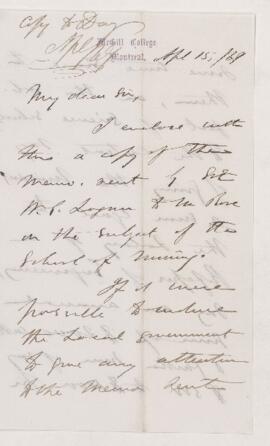 Copy to Day
McGill College
Montreal, Apl 15, /69
My dear Sir,
I enclose with
this a copy of the
Memo. sent by Sir
W. E. Logan to Mr Rose
on the subject of the
School of Mining.
If it were
possible to induce
the Local government
to give any attention
to the Memo